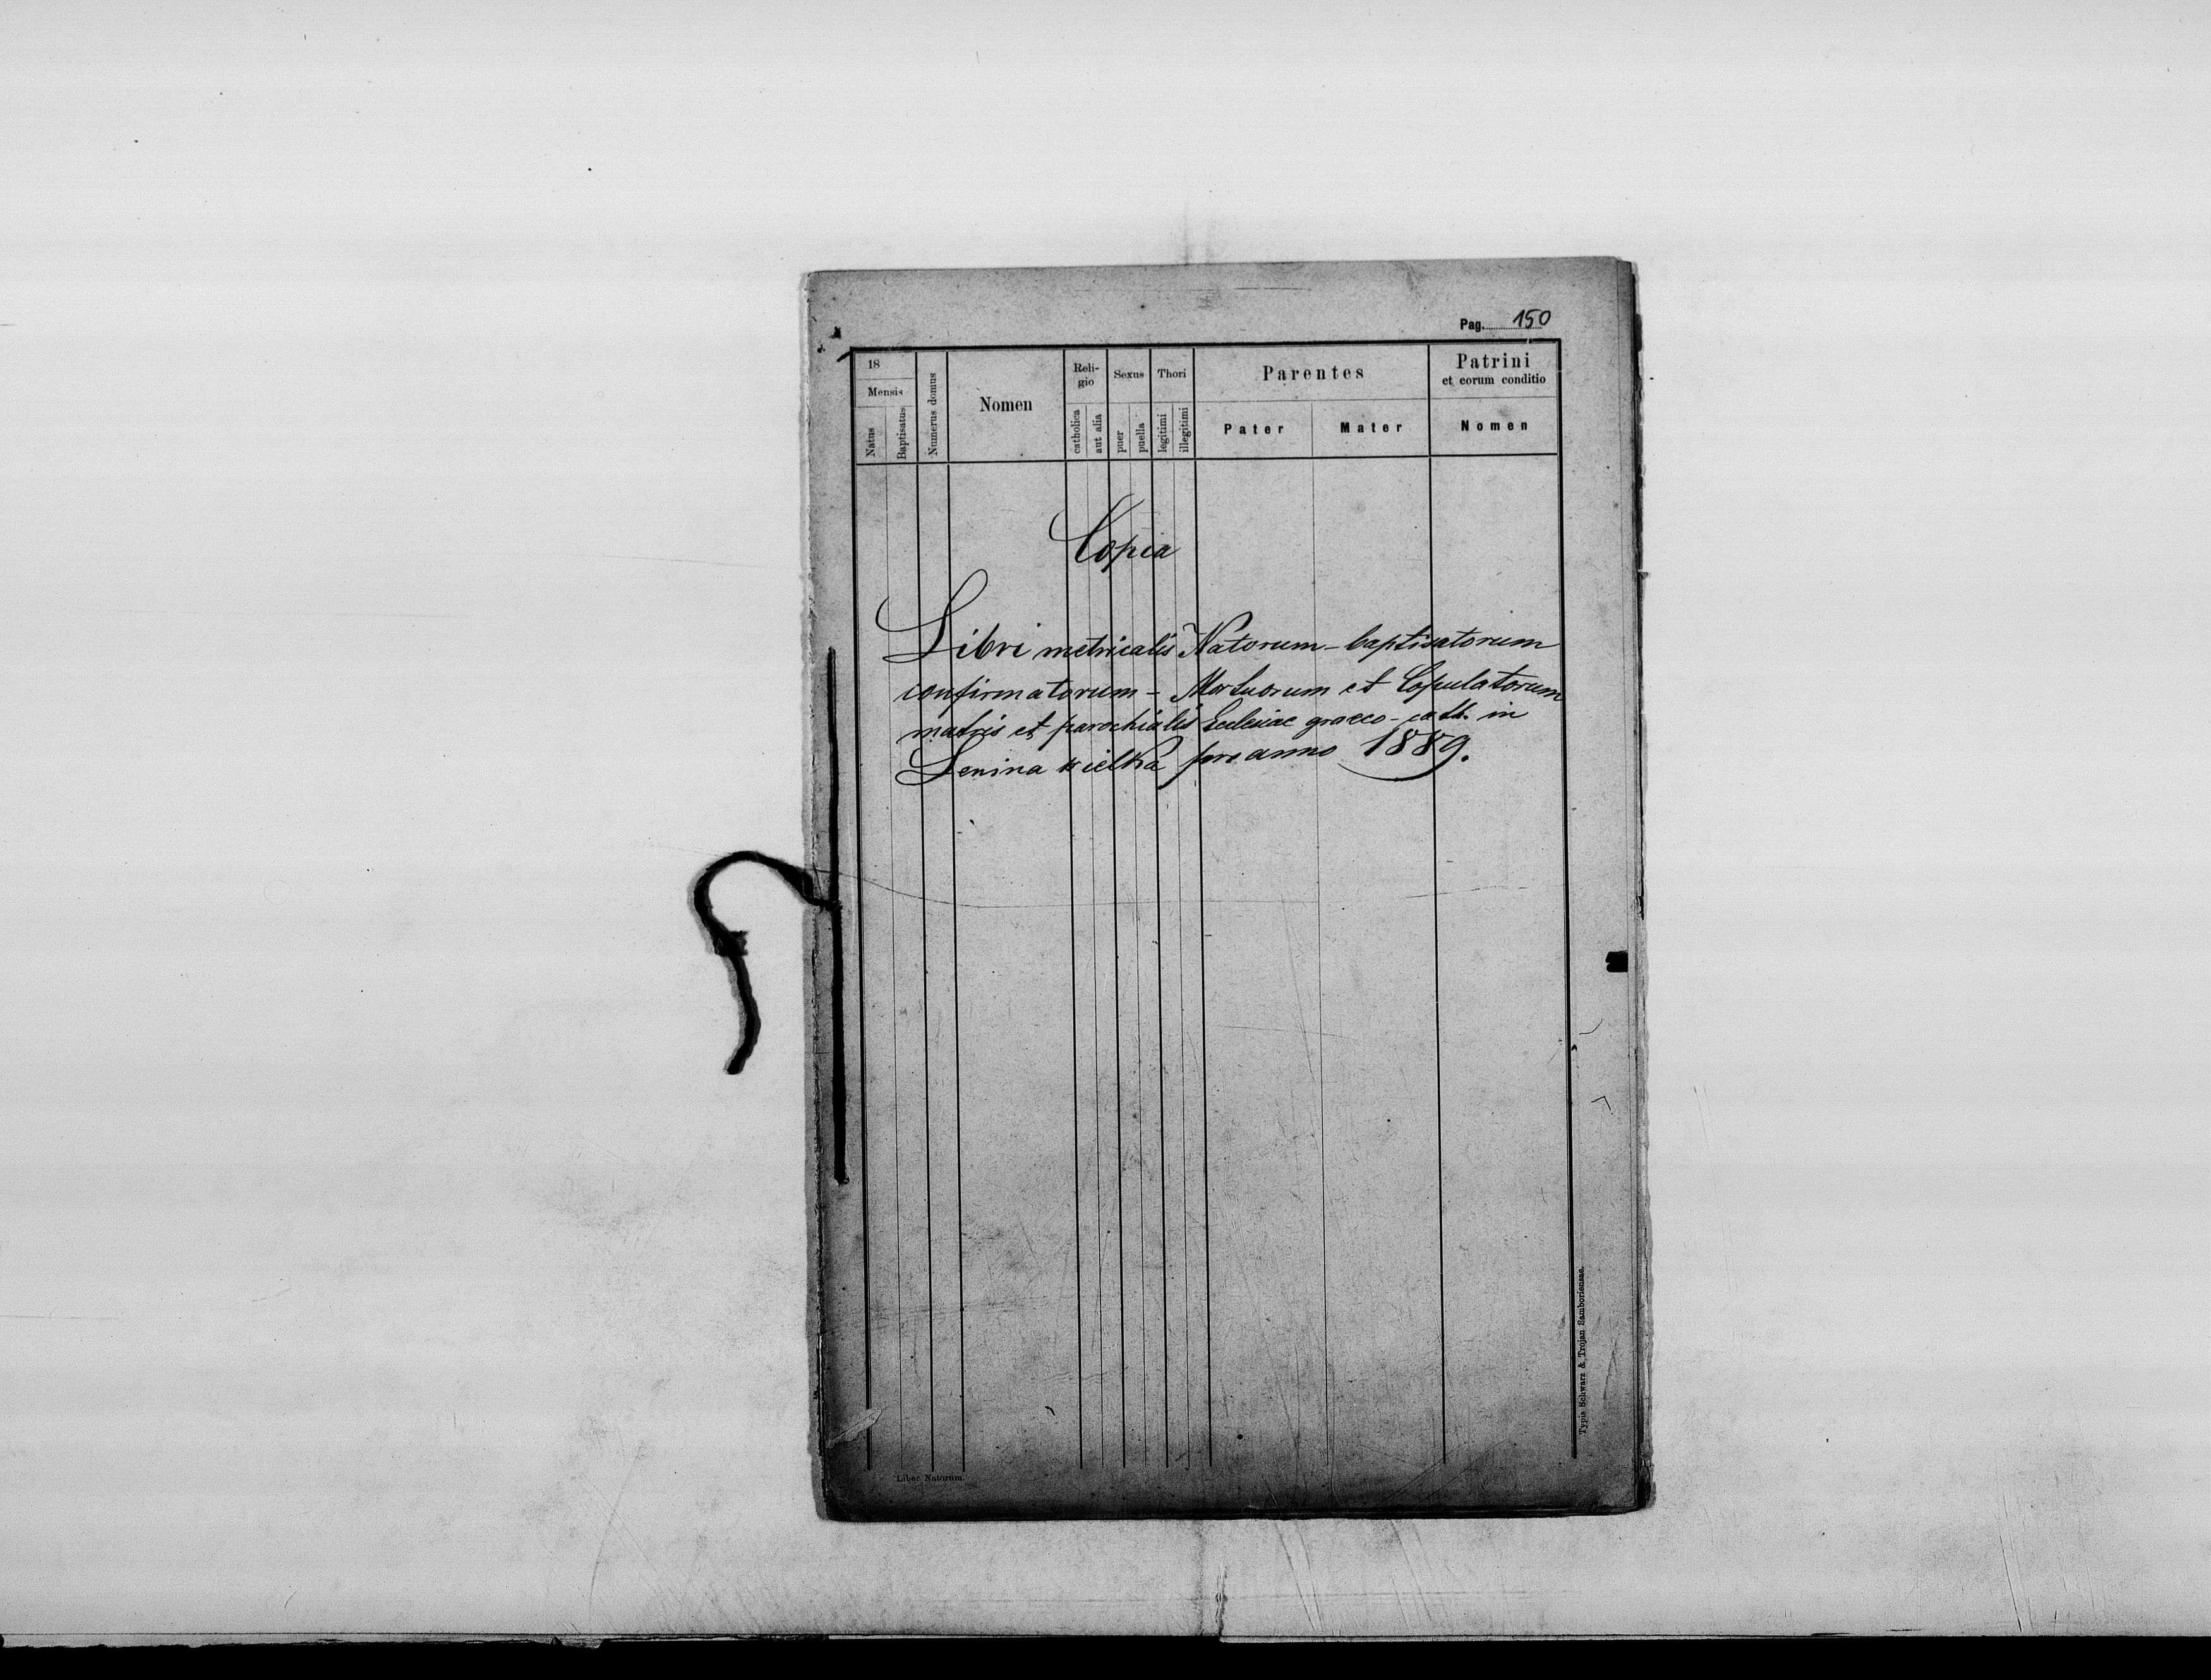 Pag. 150
18
Mensis
Natus
Baptisatus
Numerus domus
Nomen
Reli-
gio
catholica
aut alia
Sexus
puer
puella
Thori
legitimi
illegitimi
Parentes
Pater
Mater
Patrini
et eorum conditio
Nomen
Copia
Libri metricalis Natorum - baptisatorum
confirmatorum - Mortuorum et Copulatorum
matris et parochialis Ecclesiae graeco-cath. in
Lenina wielka pro anno 1889.
Liber Natorum.
Typis Schwarz & Trojan Samboriensae.